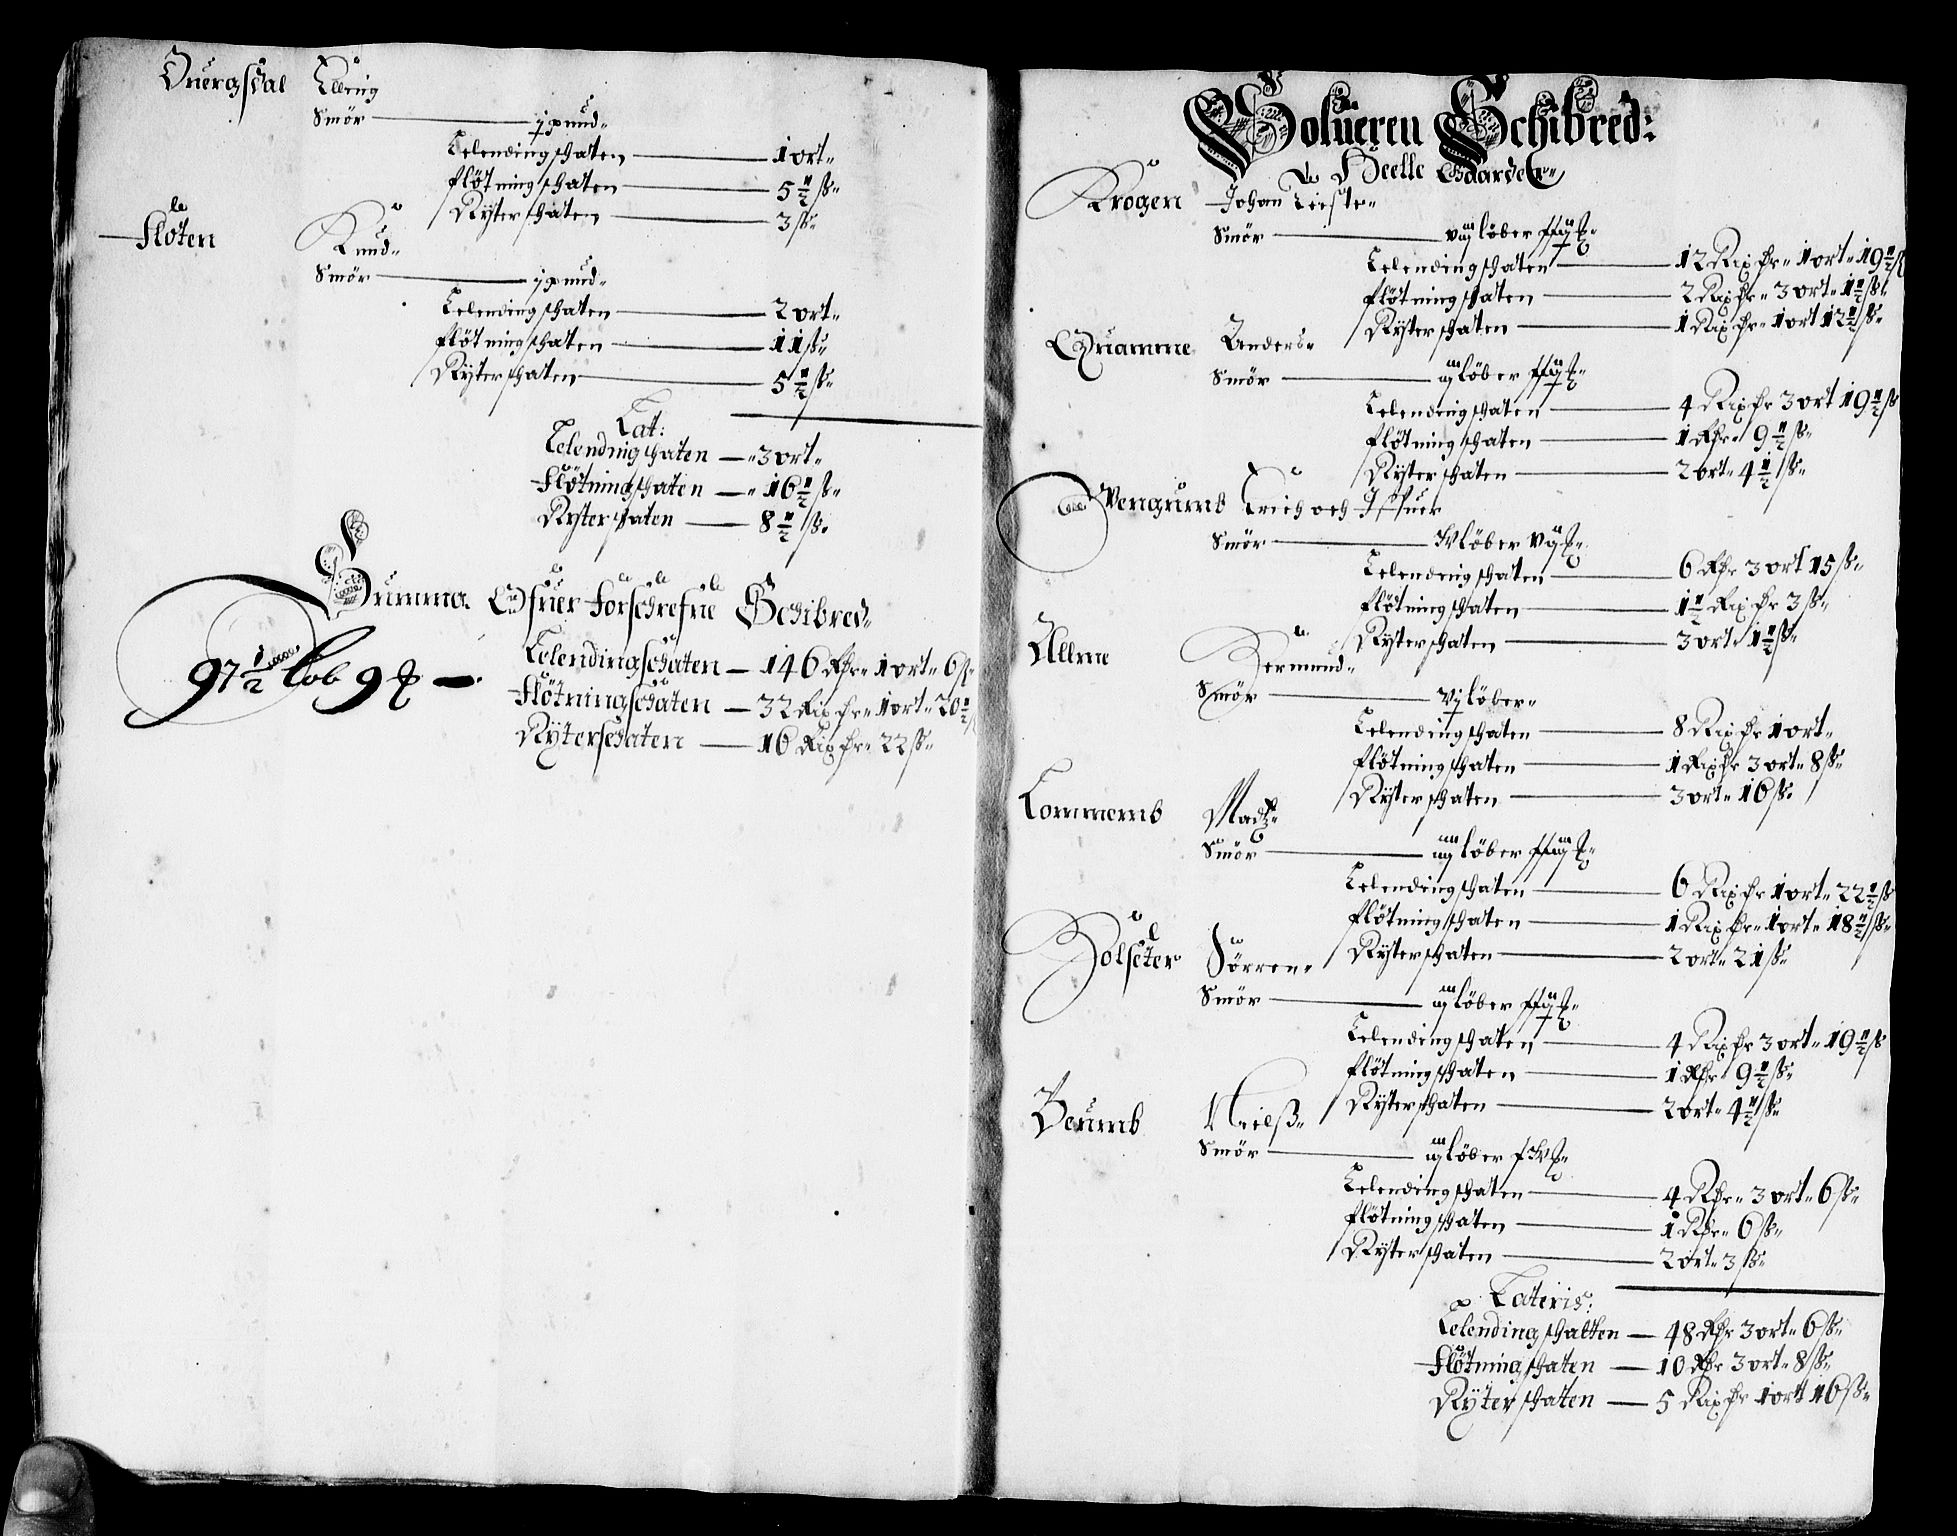 Duergsdal Elling
Smör — j pund
Lelendingschaten — 1 ort
flötningschaten — 5 1/2 ß
Ryterschaten — 3 ß
Floten Knud
Smör — j pund
Lelendingschaten — 2 ort
flötningschaten — 11 ß
Ryterschaten — 5 1/2 ß
Lat:
Lelendingschaten — 3 ort
Flötningschaten — 16 1/2 ß
Ryterschaten — 8 1/2 ß
Summa Offuer forschrefne Schibred
97 1/2 lob 9 —
Lelendingschaten — 146 Rdr 1 ort 6 ß
Flötningschaten — 32 Rixdr 1 ort 20 1/2 ß
Ryterschaten — 16 Rixdr 22 ß
Solueren Schibred:
Heelle Gaarder
Krogen Johan
Smör — löber
Lelendingschaten — 12 Rixdr 1 ort 19 1/2 ß
flötningschaten — 2 Rixdr 3 ort 1 1/2 ß
Ryterschaten — 1 Rixdr 1 ort 12 1/2 ß
Quamme Anders
Smör — iij löber
Lelendingschaten — 4 Rixdr 3 ort 19 1/2 ß
flötningschaten — 1 Rdr 9 1/2 ß
Ryterschaten — 2 ort 4 1/2 ß
Wengumb Erich och Iffuer
Smör — löber
Lelendingschaten — 6 Rdr 3 ort 15 ß
flötningschaten — 1 1/2 Rixdr 3 ß
Ryterschaten — 3 ort 1 1/2 ß
Allme Germund
Smör — vj löber
Lelendingschaten — 8 Rixdr 1 ort
flötningschaten — 1 Rixdr 3 ort 8 ß
Ryterschaten — 3 ort 16 ß
Lommemb Madtz
Smör — iiij löber
Lelendingschaten — 6 Rixdr 1 ort 22 1/2 ß
flötningschaten — 1 Rixdr 1 ort 18 1/2 ß
Ryterschaten — 2 ort 21 ß
Holseter Sörren
Smör — iij löber
Lelendingschaten — 4 Rixdr 3 ort 19 1/2 ß
flötningschaten — 1 Rdr 9 1/2 ß
Ryterschaten — 2 ort 4 1/2 ß
Veumb Nielß
Smör — iij löber
Lelendingschaten — 4 Rdr 3 ort 6 ß
flötningschaten — 1 Rdr 6 ß
Ryterschaten — 2 ort 3 ß
Lateris:
Lelendingschatten — 48 Rdr 3 ort 6 ß
Flötningschaten — 10 Rdr 3 ort 8 ß
Ryterschaten — 5 Rixdr 1 ort 16 ß